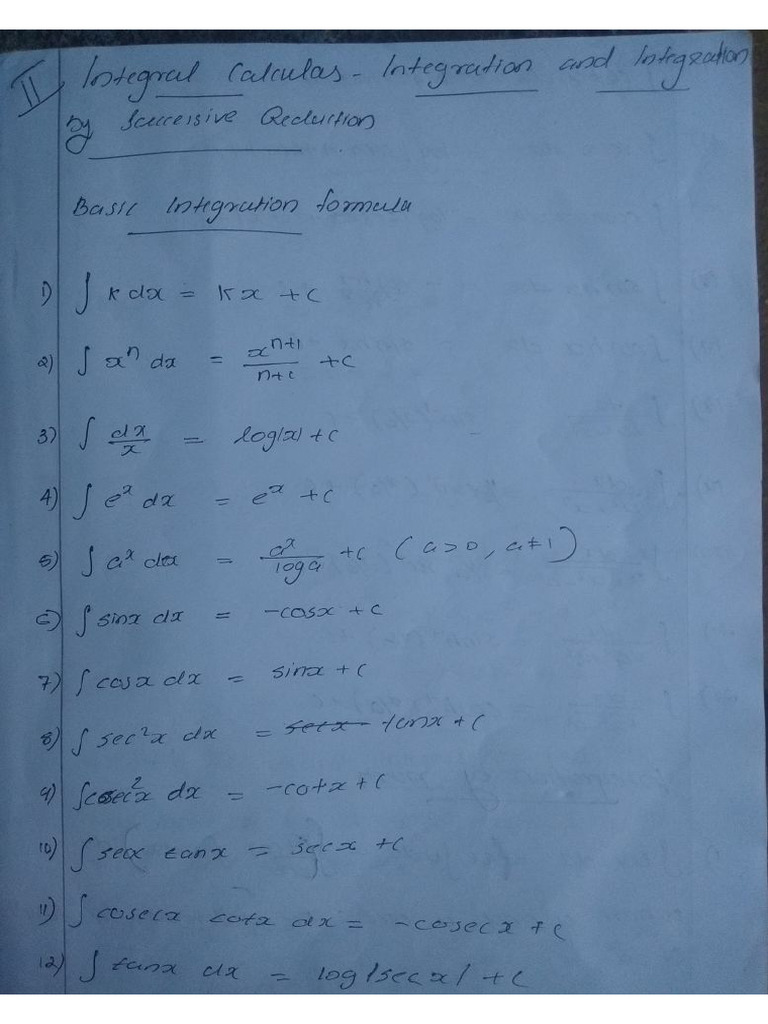 II Integral Calculas - Integration and Integration
by Successive Reduction
Basic Integration formula
1) ∫ k dx = kx + c
2) ∫ xⁿ dx = xⁿ⁺¹/n+c + c
3) ∫ dx/x = log|x| + c
4) ∫ eˣ dx = eˣ + c
5) ∫ aˣ dx = aˣ/loga + c (a>0, a≠1)
6) ∫ sinx dx = -cosx + c
7) ∫ cosx dx = sinx + c
8) ∫ sec²x dx = secx tanx + c
9) ∫ cosec²x dx = -cotx + c
10) ∫ secx tanx = secx + c
11) ∫ cosecx cotx dx = -cosecx + c
12) ∫ tanx dx = log|secx| + c